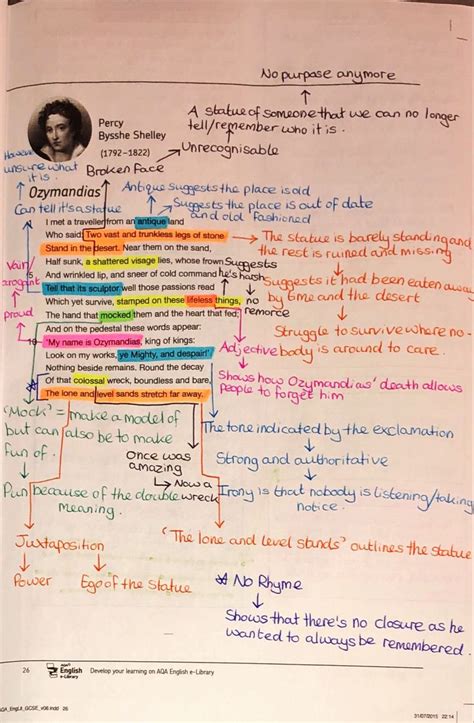 No purpose anymore
A statue of someone that we can no longer
tell/remember who it is.
Unrecognisable
Percy
Bysshe Shelley
(1792–1822)
However
unsure what
it is.
Broken Face
Antique suggests the place is old
Ozymandias
Suggests the place is out of date
and old fashioned
Can tell it's a statue
I met a traveller from an antique land
Who said: Two vast and trunkless legs of stone
Stand in the desert. Near them on the sand,
Half sunk, a shattered visage lies, whose frown
5 And wrinkled lip, and sneer of cold command
Tell that its sculptor well those passions read
Which yet survive, stamped on these lifeless things,
The hand that mocked them and the heart that fed;
And on the pedestal these words appear:
10 'My name is Ozymandias, king of kings:
Look on my works, ye Mighty, and despair!'
Nothing beside remains. Round the decay
Of that colossal wreck, boundless and bare,
The lone and level sands stretch far away.
The statue is barely standing and
the rest is ruined and missing
Suggests
he's harsh
no
remorce
Suggests it had been eaten away
by time and the desert
Struggle to survive where no-
body is around to care.
Vain/
arrogant
proud
Adjective
Shows how Ozymandias' death allows
people to forget him
'Mock' = make a model of
but can also be to make
fun of.
Pun because of the double
meaning.
Once was
amazing
Now a
wreck
The tone indicated by the exclamation
Strong and authoritative
Irony is that nobody is listening/taking
notice.
Juxtaposition
Power
Ego of the Statue
'The lone and level stands' outlines the statue
* No Rhyme
Shows that there's no closure as he
wanted to always be remembered.
26
AQA
English
e-Library
Develop your learning on AQA English e-Library
AQA_EngLit_GCSE_v08.indd 26
31/07/2015 22:14